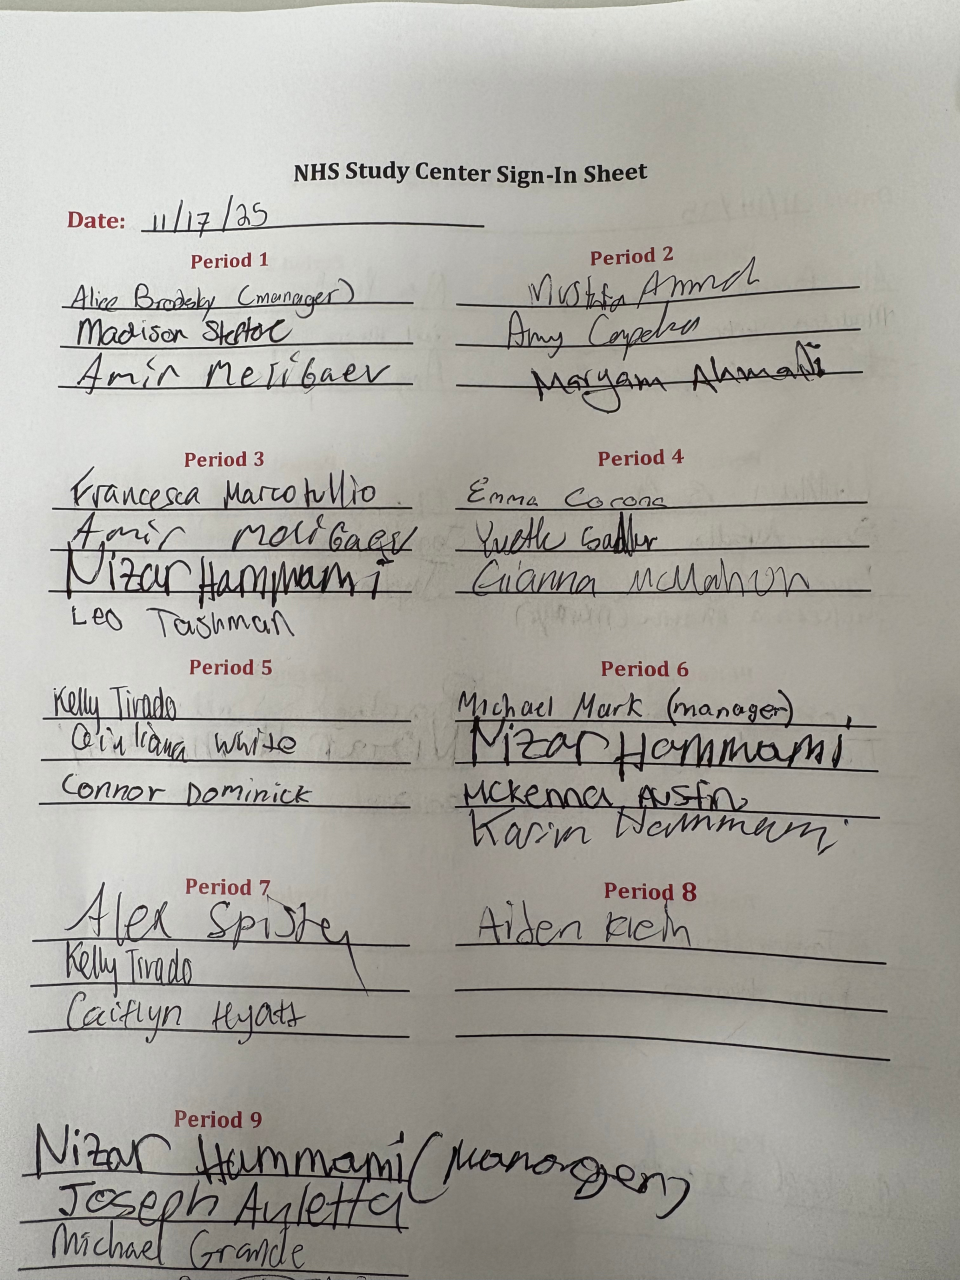 NHS Study Center Sign-In Sheet
Date: 11/17/25
Period 1
Alice Brodsky (manager)
Madison
Amir Melibaev
Period 2
Mustafa Ahmed
Amy
Maryam Ahmadi
Period 3
Francesca Marcotullio
Amir Melibaev
Nizar Hammami
Leo Tashman
Period 4
Emma Corona
Yvette Sadler
Gianna McMahon
Period 5
Kelly Tirado
White
Connor Dominick
Period 6
Michael Mark (manager)
Nizar Hammami
McKenna Austin
Karim Hammami
Period 7
Alex
Kelly Tirado
Caitlyn Hyatt
Period 8
Aiden Klein
Period 9
Nizar Hammami (Manager)
Joseph Auletta
Michael Grande